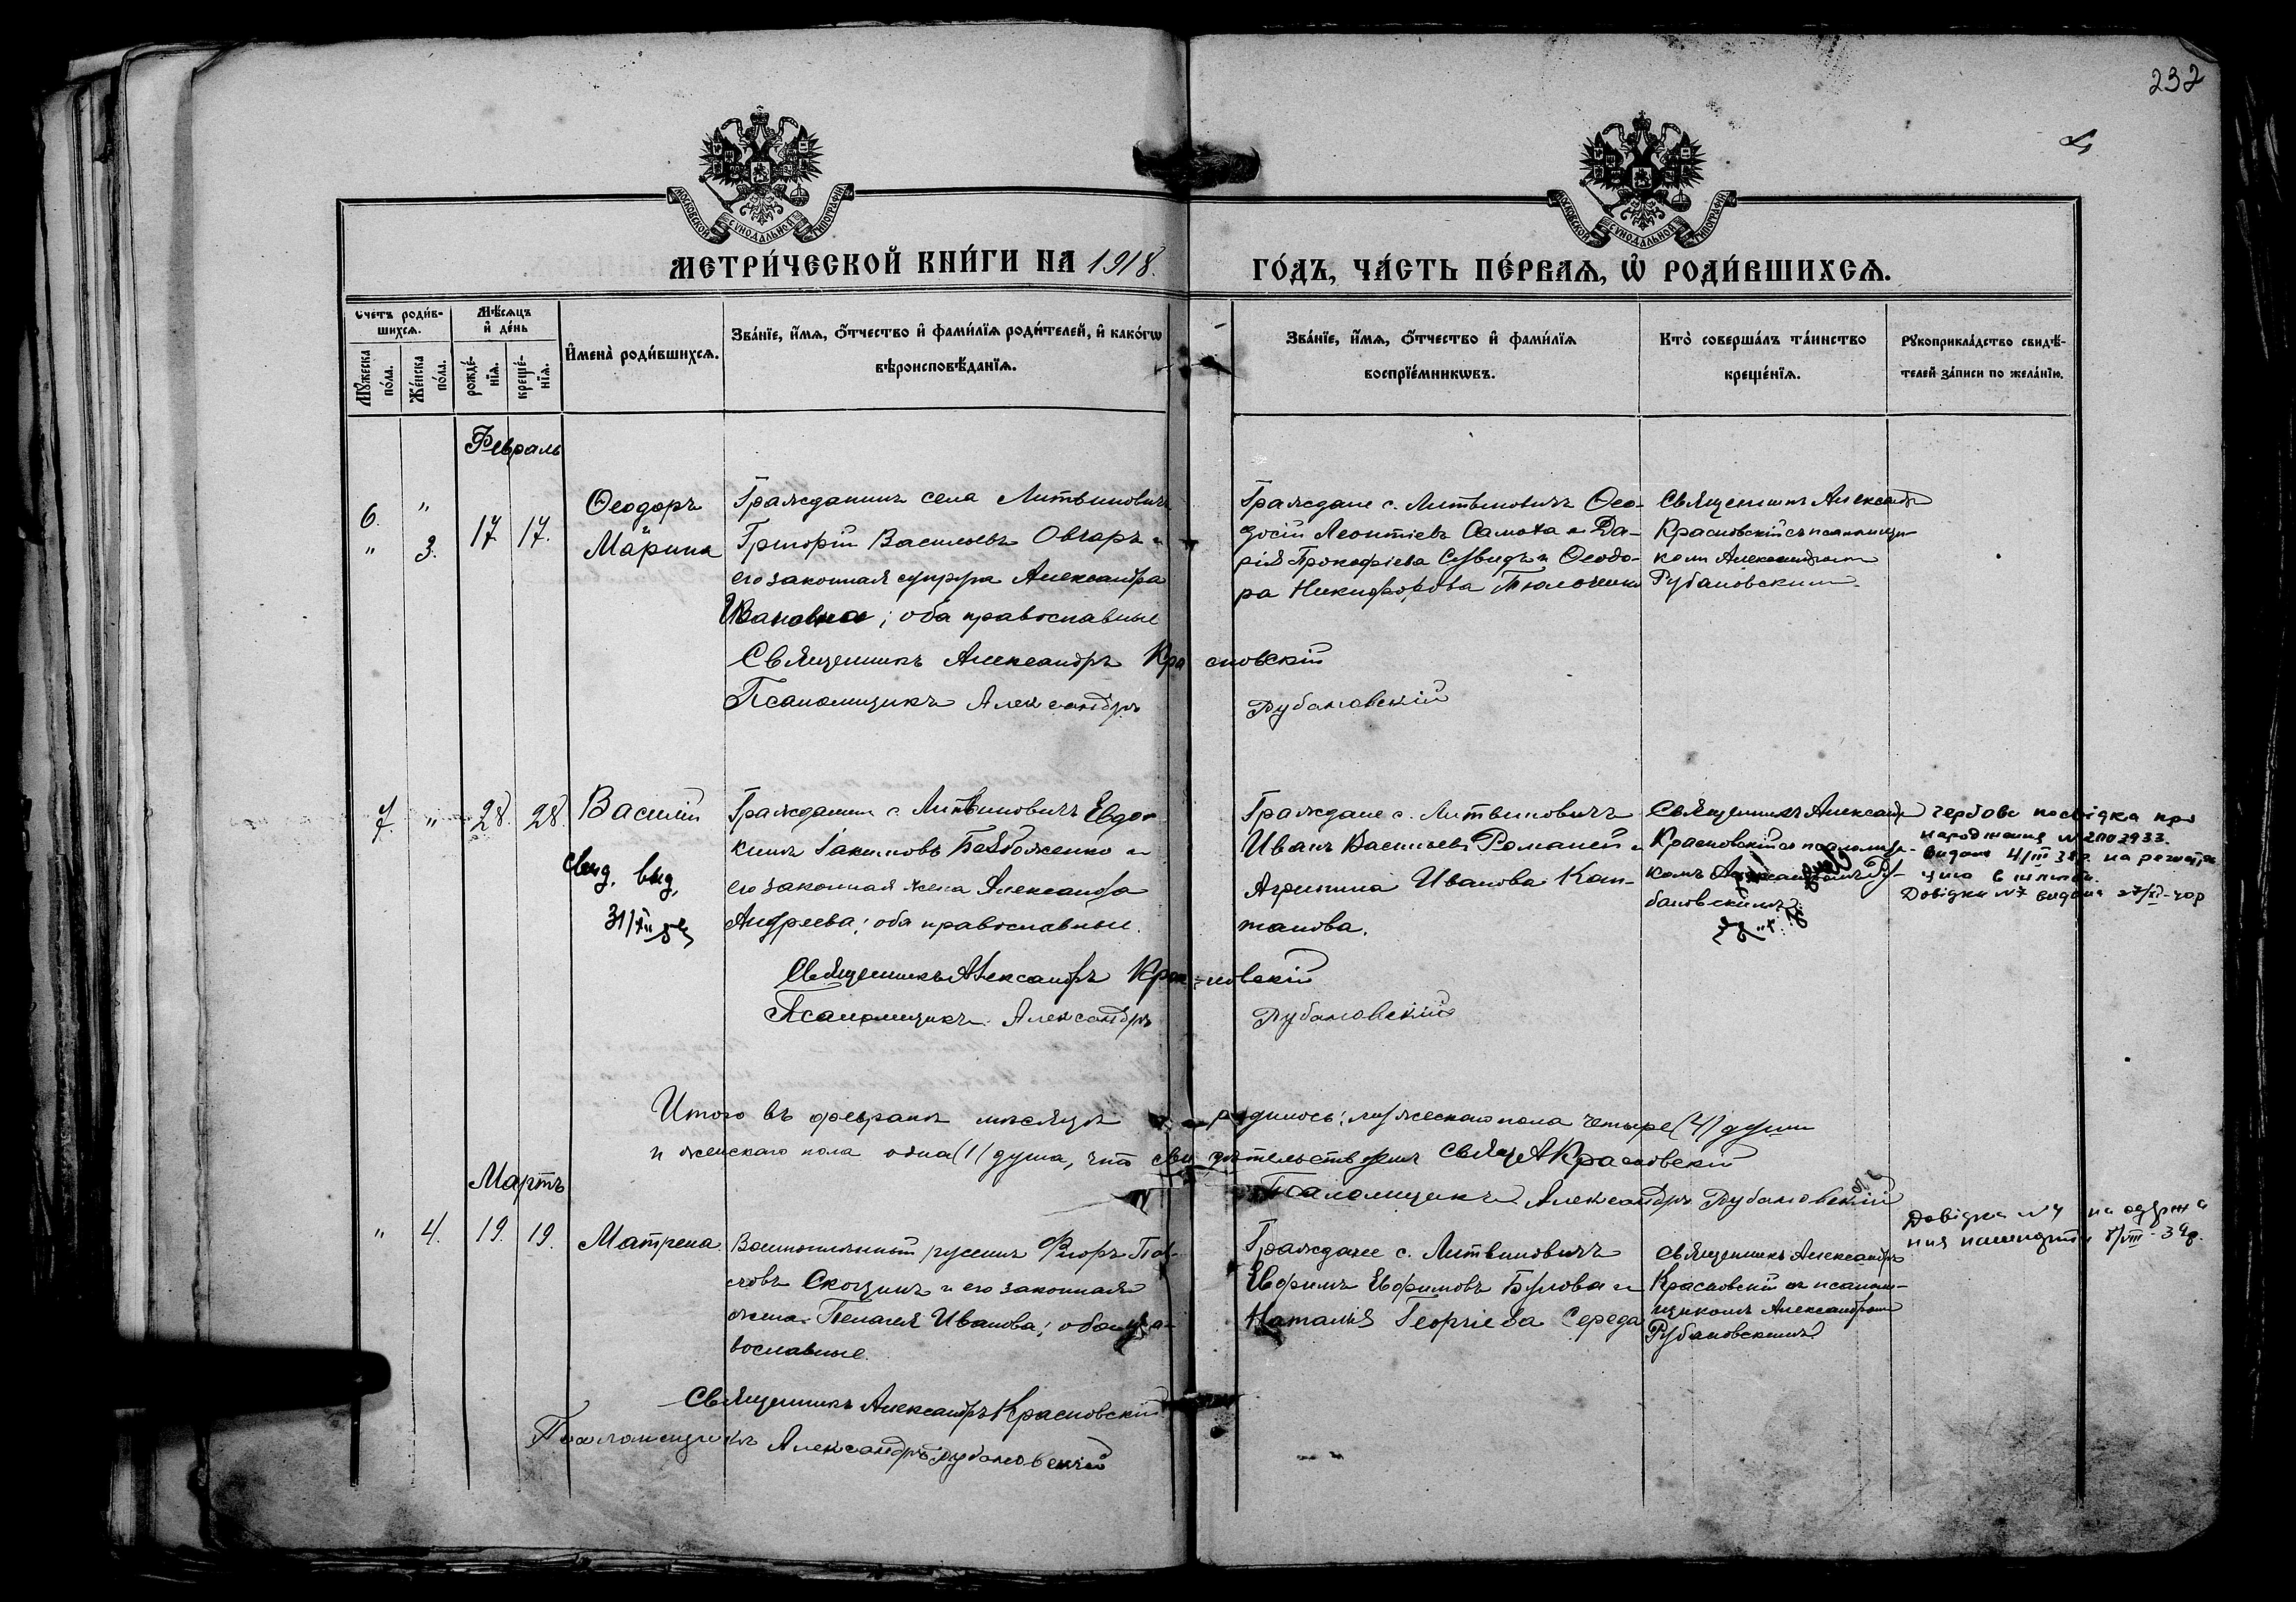 232
МОСКОВСКОЙ СУНОДАЛЬНОЙ ТИПОГРАФІИ
МОСКОВСКОЙ СУНОДАЛЬНОЙ ТИПОГРАФІИ
МЕТРИ́ЧЕСКОЙ КНИ́ГИ НА 1918. ГО́ДЪ, ЧА́СТЬ ПЕ́РВАѦ, Ѽ РОДИ́ВШИХСѦ.
Счетъ роди́в-
шихсѧ.
Мꙋ́жеска по́ла.
Же́нска по́ла.
Мѣ́сѧцъ
и҆ де́нь
рожде́-
нїѧ.
креще́-
нїѧ.
И҆мена̀ роди́вшихсѧ.
Зва́нїе, и҆́мѧ, ѻ҆́тчество и҆ фами́лїѧ роди́телей, и҆ како́гѡ
вѣроисповѣ́данїѧ.
Зва́нїе, и҆́мѧ, ѻ҆́тчество и҆ фами́лїѧ
воспрїе́мникѡвъ.
Кто̀ соверша́лъ та́инство
креще́нїѧ.
Рꙋкоприкла́дство свидѣ́-
телей за́писи по жела́нїю.
Февраль
6. " 17 17. Ѳеодоръ
" 3. Марина
Гражданинъ села Литвиновичъ
Григорій Васильевъ Овчаръ и
его законная супруга Александра
Ивановна; оба православные
Граждане с. Литвиновичъ Ѳео-
досій Леонтіевъ Самоха и Да-
рія Прокофіева Сувидъ и Ѳеодо-
ра Никифорова Тюлочина
Священникъ Александръ
Красновскій съ псаломщи-
комъ Александромъ
Рубановскимъ
Священникъ Александръ Красновскій
Псаломщикъ Александръ Рубановскій
7. " 28. 28. Василій
Свид. выд.
Гражданинъ с. Литвиновичъ Евдо-
кимъ Іакимовъ Безбоженко и
его законная жена Александра
Андреева; оба православные.
Граждане с. Литвиновичъ
Иванъ Васильевъ Романей и
Агрипина Иванова Кап-
танова.
Священникъ Александръ
Красновскій съ псаломщи-
комъ Александромъ Ру-
бановскимъ
гербова посвідка про
народження № 2003933
видана 4/III 38р. на регистра-
цию в шлюбі.
Довідка №7 видана 27/XI-40р
Священникъ Александръ Красновскій
Псаломщикъ Александръ Рубановскій
Итого въ февралѣ мѣсяцѣ родилось: мужескаго пола четыре (4) души
и женскаго пола одна (1) душа, что свидѣтельствуемъ Свящ А Красновскій
Псаломщикъ Александръ Рубановскій
Мартъ
" 4. 19. 19. Матрена
Военноплѣнный русинъ Флоръ Пав-
ловъ Скоцинъ и его законная
жена Пелагея Иванова; оба пра-
вославные.
Граждане с. Литвиновичъ
Евфимъ Евфимовъ Булова и
Наталія Георгіева Середа
Священникъ Александръ
Красновскій съ псалом-
щикомъ Александромъ
Рубановскимъ
Довідка №4 на одержа
ния 8/VIII-39р.
Священникъ Александръ Красновскій
Псаломщикъ Александръ Рубановскій